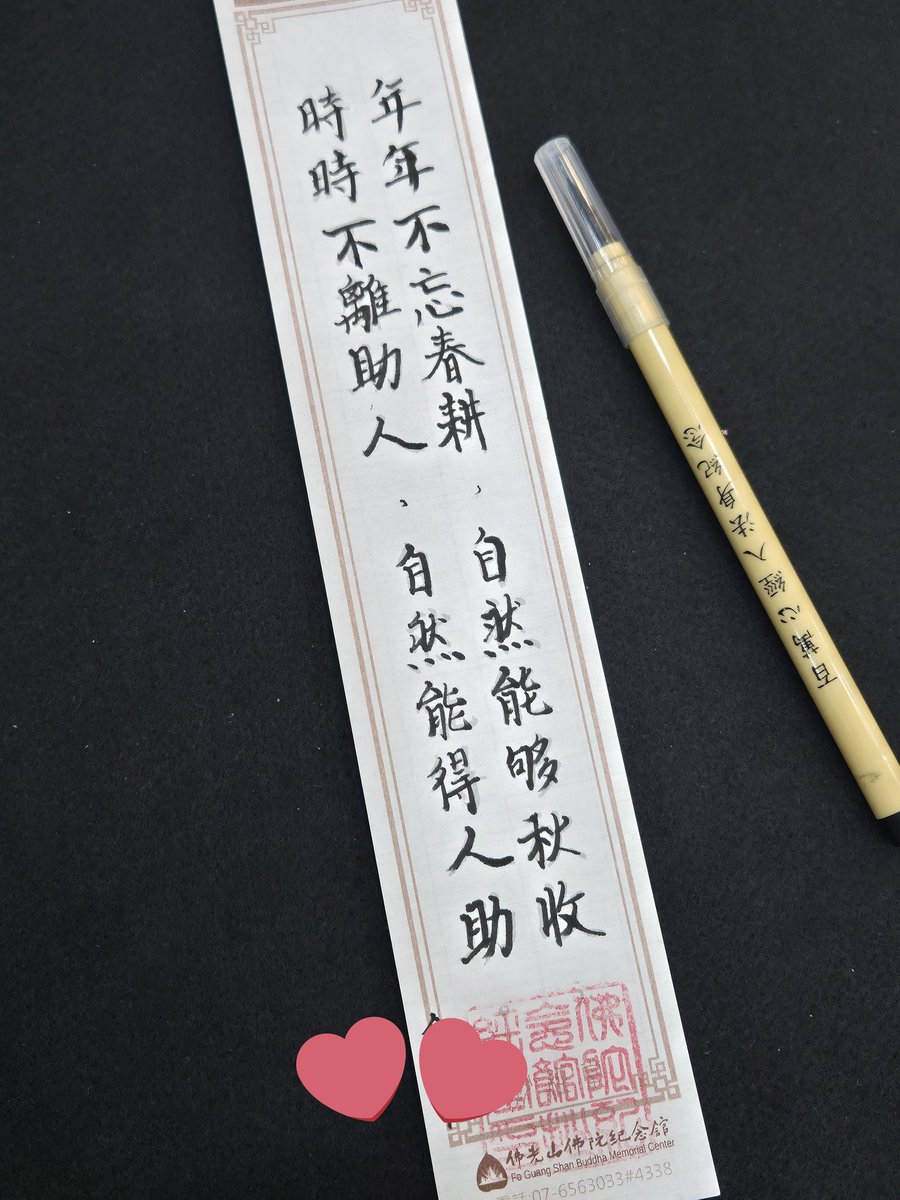 年年不忘春耕，自然能够秋收
時時不離助人，自然能得人助
佛光山佛陀紀念館
Fo Guang Shan Buddha Memorial Center
電話:07-6563033#4338
百萬心經入法身紀念